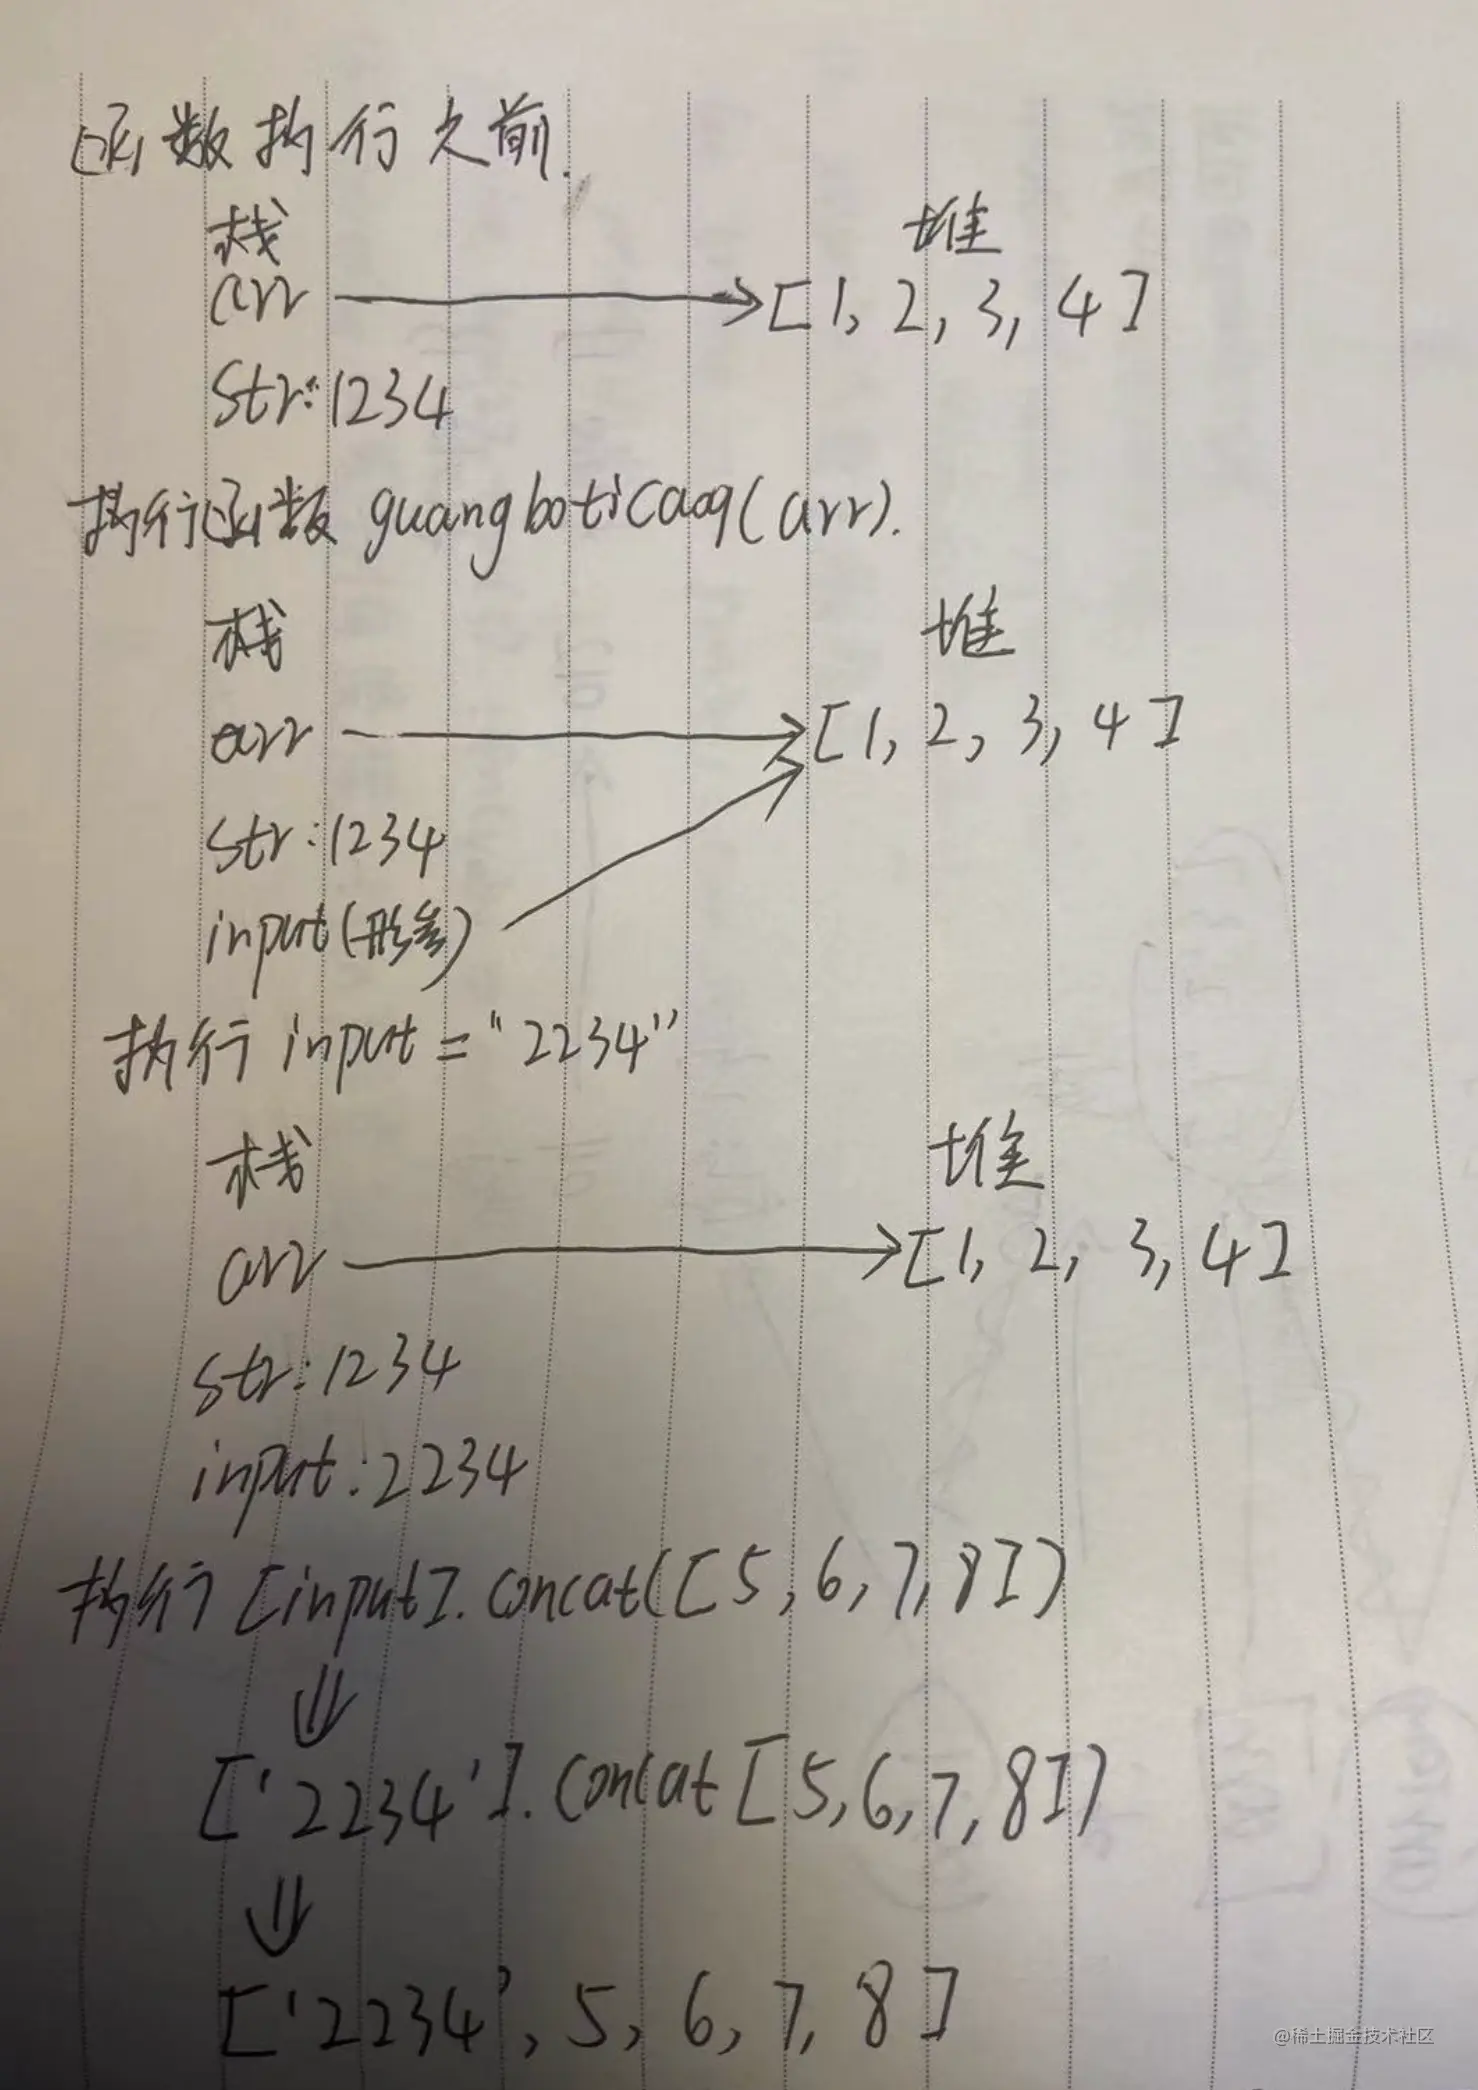 函数执行之前.
栈 堆
arr [1, 2, 3, 4]
str:1234
执行函数 guangboticaoq(arr).
栈 堆
arr [1, 2, 3, 4]
str:1234
input(形参)
执行 input = "2234"
栈 堆
arr [1, 2, 3, 4]
str:1234
input:2234
执行 [input].concat([5, 6, 7, 8])
['2234'].concat[5, 6, 7, 8])
['2234', 5, 6, 7, 8]
@稀土掘金技术社区